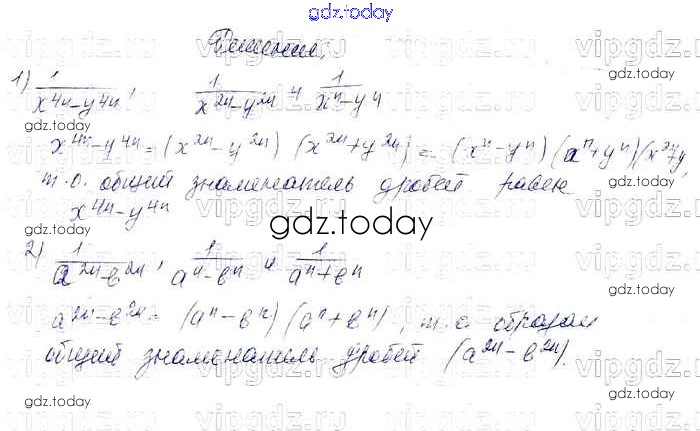 gdz.today
Решение.
1) 1/(x^4n-y^4n), 1/(x^2n-y^2n) и 1/(x^n-y^n)
x^4n-y^4n=(x^2n-y^2n)(x^2n+y^2n)=(x^n-y^n)(a^n+y^n)(x^2n+y
т.о. общий знаменатель дробей равен
x^4n-y^4n
gdz.today
2) 1/(a^2n-b^2n), 1/(a^n-b^n) и 1/(a^n+b^n)
a^2n-b^2n=(a^n-b^n)(a^n+b^n), т.о. образом
общий знаменатель дробей (a^2n-b^2n).
vipgdz.ru
gdz.today